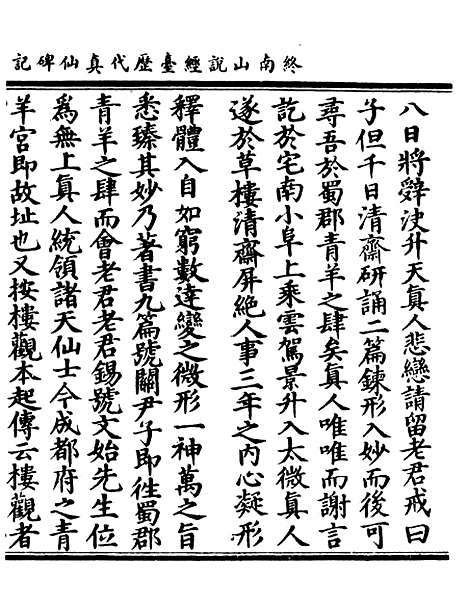 終南山說經臺歷代真仙碑記
八日將辤決升天真人悲戀請留老君戒曰
子但千日清齋研誦二篇鍊形入妙而後可
尋吾於蜀郡青羊之肆矣真人唯唯而謝言
訖於宅南小阜上乘雲駕景升入太微真人
遂於草樓清齋屏絕人事三年之內心凝形
釋體入自如窮數達變之微形一神萬之旨
悉臻其妙乃著書九篇號關尹子即往蜀郡
青羊之肆而會老君老君錫號文始先生位
為無上真人統領諸天仙士今成都府之青
羊宮即故址也又按樓觀本起傳云樓觀者